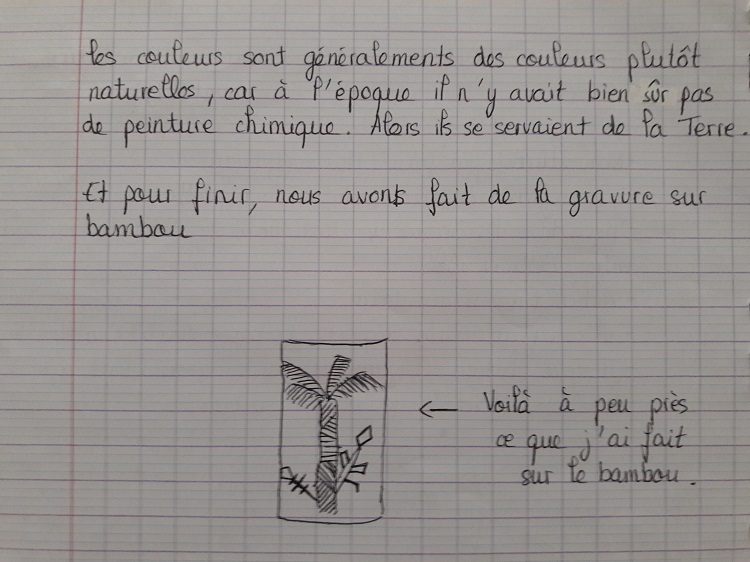 les couleurs sont généralements des couleurs plutôt
naturelles, car à l'époque il n'y avait bien sûr pas
de peinture chimique. Alors ils se servaient de la Terre.
Et pour finir, nous avons fait de la gravure sur
bambou
← Voilà à peu près
ce que j'ai fait
sur le bambou.